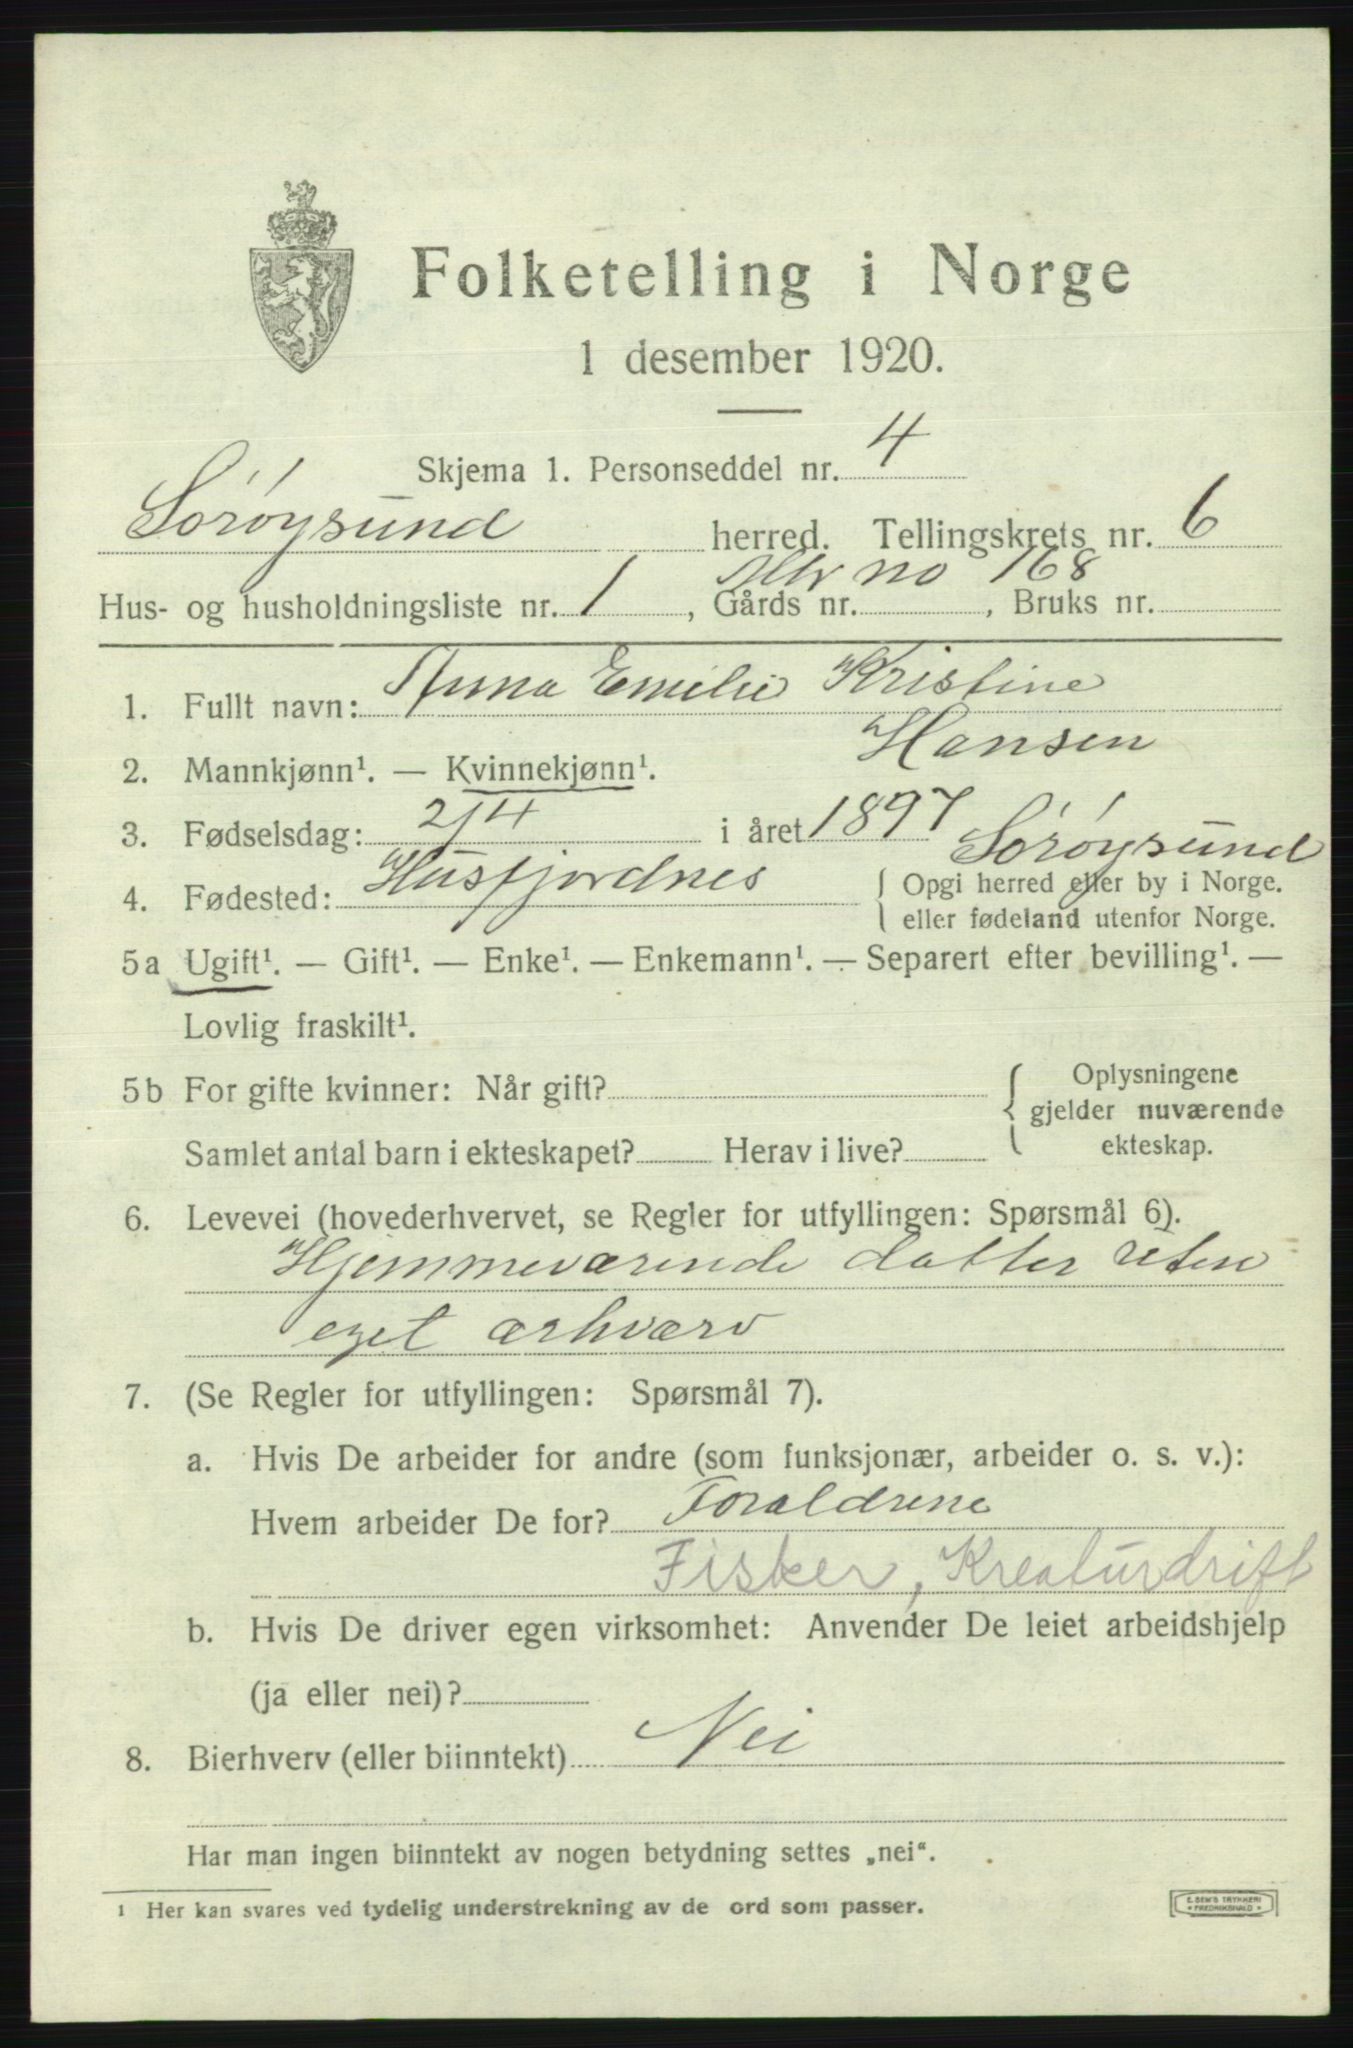 Folketelling i Norge
1 desember 1920.
Skjema 1. Personseddel nr. 4
Sørøysund herred. Tellingskrets nr. 6
Mtr no 168
Hus- og husholdningsliste nr. 1, Gårds nr. , Bruks nr.
1. Fullt navn: Anna Emilie Kristine
Hansen
2. Mannkjønn¹. — Kvinnekjønn¹.
3. Fødselsdag: 2/4 i året 1897
4. Fødested: Husfjordnes Sørøysund
{ Opgi herred eller by i Norge.
eller fødeland utenfor Norge.
5a Ugift¹. — Gift¹. — Enke¹. — Enkemann¹. — Separert efter bevilling¹. —
Lovlig fraskilt¹.
5b For gifte kvinner: Når gift?
Samlet antal barn i ekteskapet? Herav i live?
{ Oplysningene
gjelder nuværende
ekteskap.
6. Levevei (hovederhvervet, se Regler for utfyllingen: Spørsmål 6).
Hjemmeværende datter uten
eget ærhværv
7. (Se Regler for utfyllingen: Spørsmål 7).
a. Hvis De arbeider for andre (som funksjonær, arbeider o. s. v.):
Hvem arbeider De for? Foraldrene
Fisker, Kreaturdrift
b. Hvis De driver egen virksomhet: Anvender De leiet arbeidshjelp
(ja eller nei)?
8. Bierhverv (eller biinntekt) Nei
Har man ingen biinntekt av nogen betydning settes „nei“.
¹ Her kan svares ved tydelig understrekning av de ord som passer.
E. SEM'S TRYKKERI
• FREDRIKSHALD •